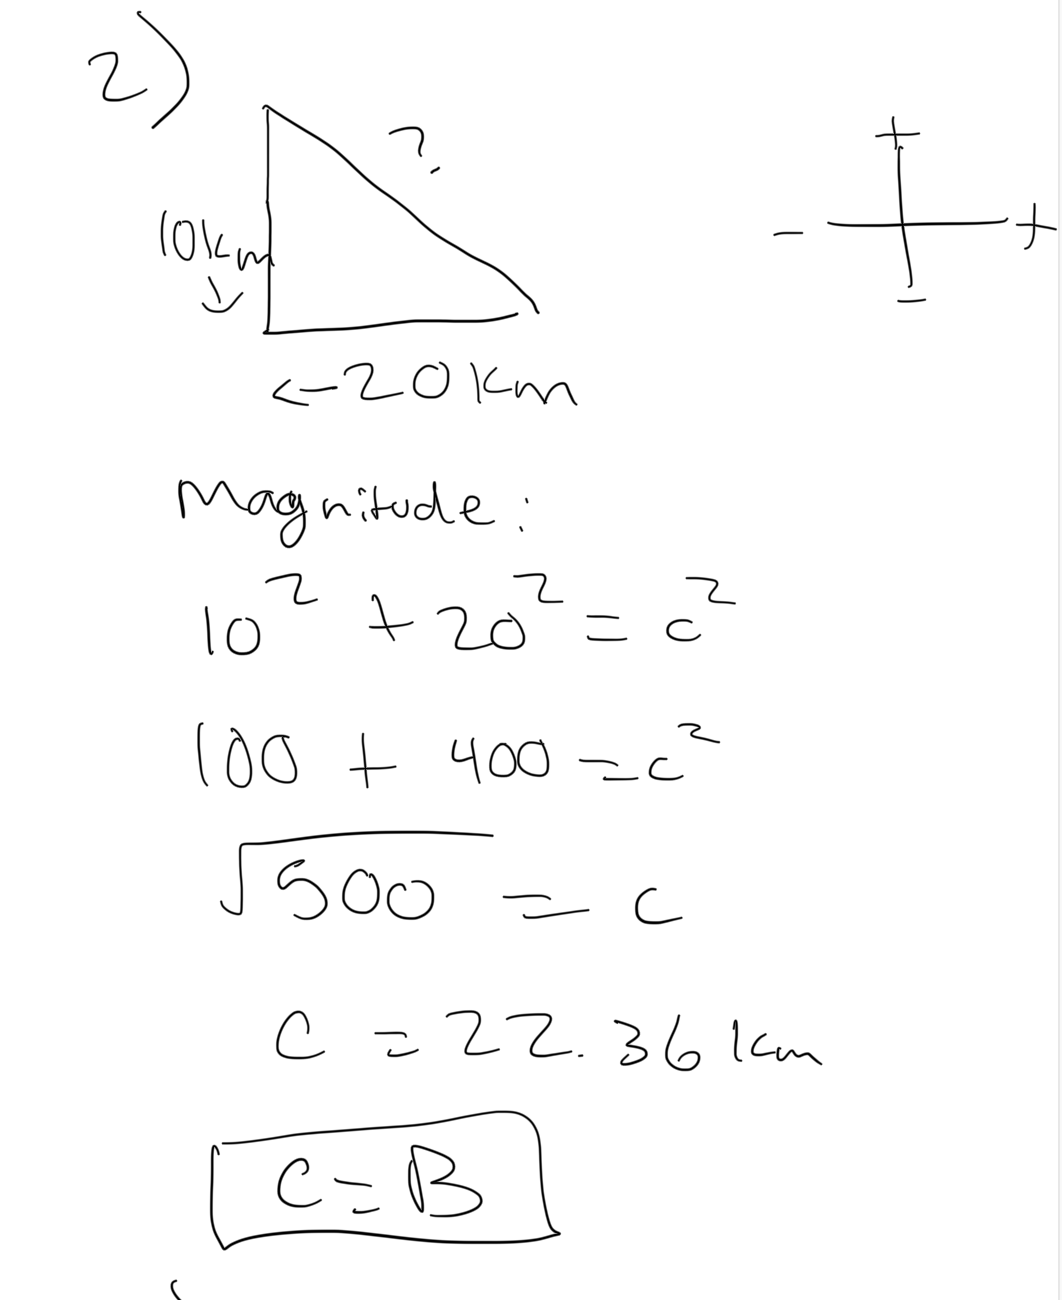 2)
?
+
10km
- +
↓
-
←20km
Magnitude:
10² + 20² = c²
100 + 400 = c²
√500 = c
c = 22.36km
C = B